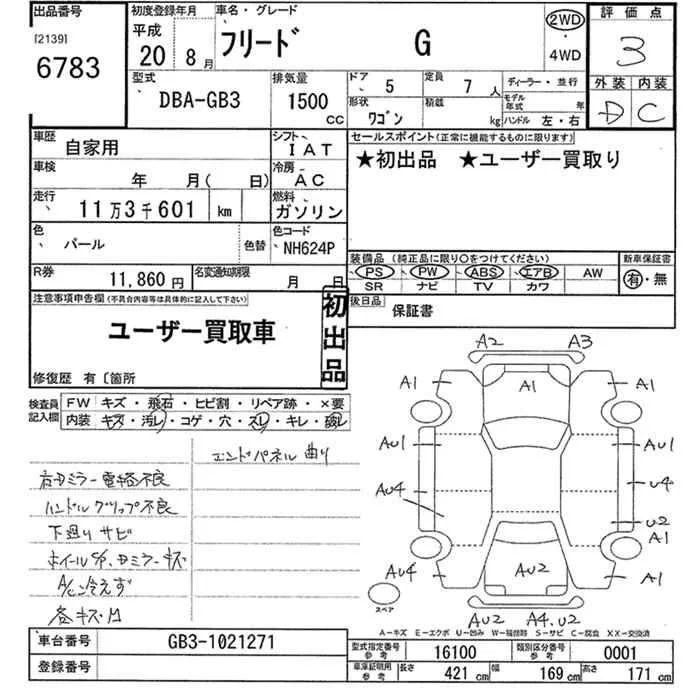 出品番号 初度登録年月 車名・グレード 評価点
[2139] 平成 フリード G 2WD ・ 4WD 3
6783 20 8月
型式 排気量 ドア 5 定員 7人 ディーラー・並行 外装 内装
DBA-GB3 1500cc 形状 ワゴン 積載 kg モデル年式 年 ハンドル 左・右 D C
車歴 自家用 シフト IAT セールスポイント(正常に機能するものに限ります)
車検 年 月( 日) 冷房 AC ★初出品 ★ユーザー買取り
走行 11万3千601 km 燃料 ガソリン
色 パール 色替 色コード NH624P
装備品(純正品に限り○をつけてください) 新車保証書
PS PW ABS エアB AW 有・無
SR ナビ TV カワ
R券 11,860円 名変通知期限 月 日
注意事項申告欄(不具合内容等は具体的に記入して下さい) 初出品 後日品 保証書
ユーザー買取車
修復歴 有〔箇所
検査員記入欄 FW キズ・飛石・ヒビ割・リペア跡・×要
内装 キズ・汚レ・コゲ・穴・スレ・キレ・破レ
エンドパネル曲り
右Dミラー電格不良
ハンドルグリップ不良
下廻りサビ
ホイールC/P、Dミラーキズ
A/C冷えず
各キズ凹
A2 A3
A1 A1 A1
AU1 AU1
AU4 U4
U2
A1
AU4 AU2 A1
スペア
AU2 A4.U2
A-キズ E-エクボ U-凹み W-補修跡 S-サビ C-腐食 XX-交換済
車台番号 GB3-1021271
登録番号
型式指定番号 参考 16100 類別区分番号 参考 0001
車庫証明用 参考 長さ 421cm 幅 169cm 高さ 171cm